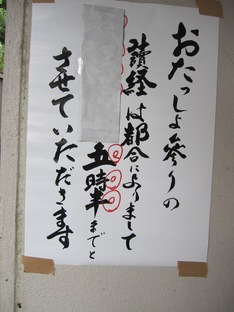 おたっしょ參りの
讀経は都合によりまして
五時半までと
させていただきます